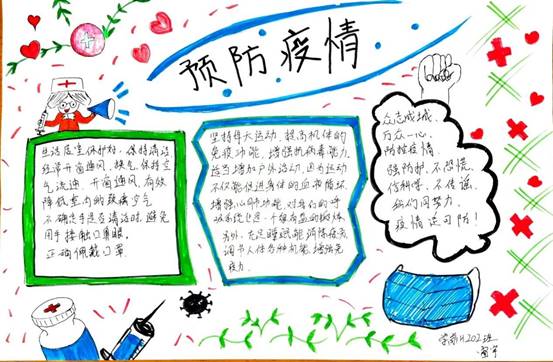 预防疫情
生活居室保护好，保持清洁
经常开窗通风，换气，保持空
气流通，开窗通风，有效
降低室内的致病空气
不确定手是否清洁时，避免
用手接触口鼻眼。
正确佩戴口罩
坚持伴大运动，提高机体的
免疫功能，增强抗病毒能力。
适当增加户外运动，因为运动
不仅能促进身体的血液循环，
增强心肺功能，对我们的呼
吸系统也是一个很有益的锻炼
另外，充足睡眠能消除疲劳
调节人体各种机能，增强免
疫力。
众志成城，
万众一心，
防控疫情，
强防护，不恐慌，
信科学，不传谣，
我们同努力，
疫情误可防！
202班